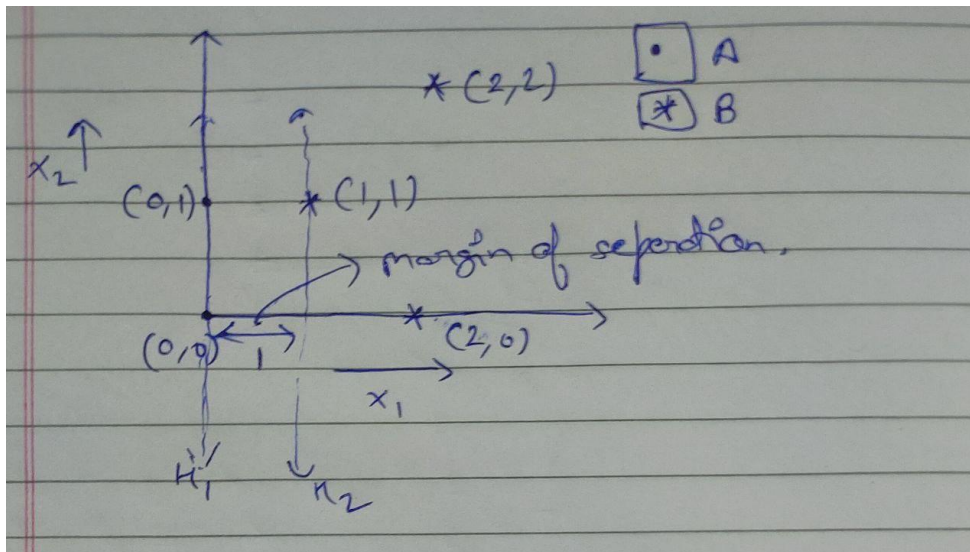 • A
* (2,2)
* B
x2 ↑
(0,1)
(1,1)
margin of seperation.
(0,0)
1
(2,0)
x1
H1
H2